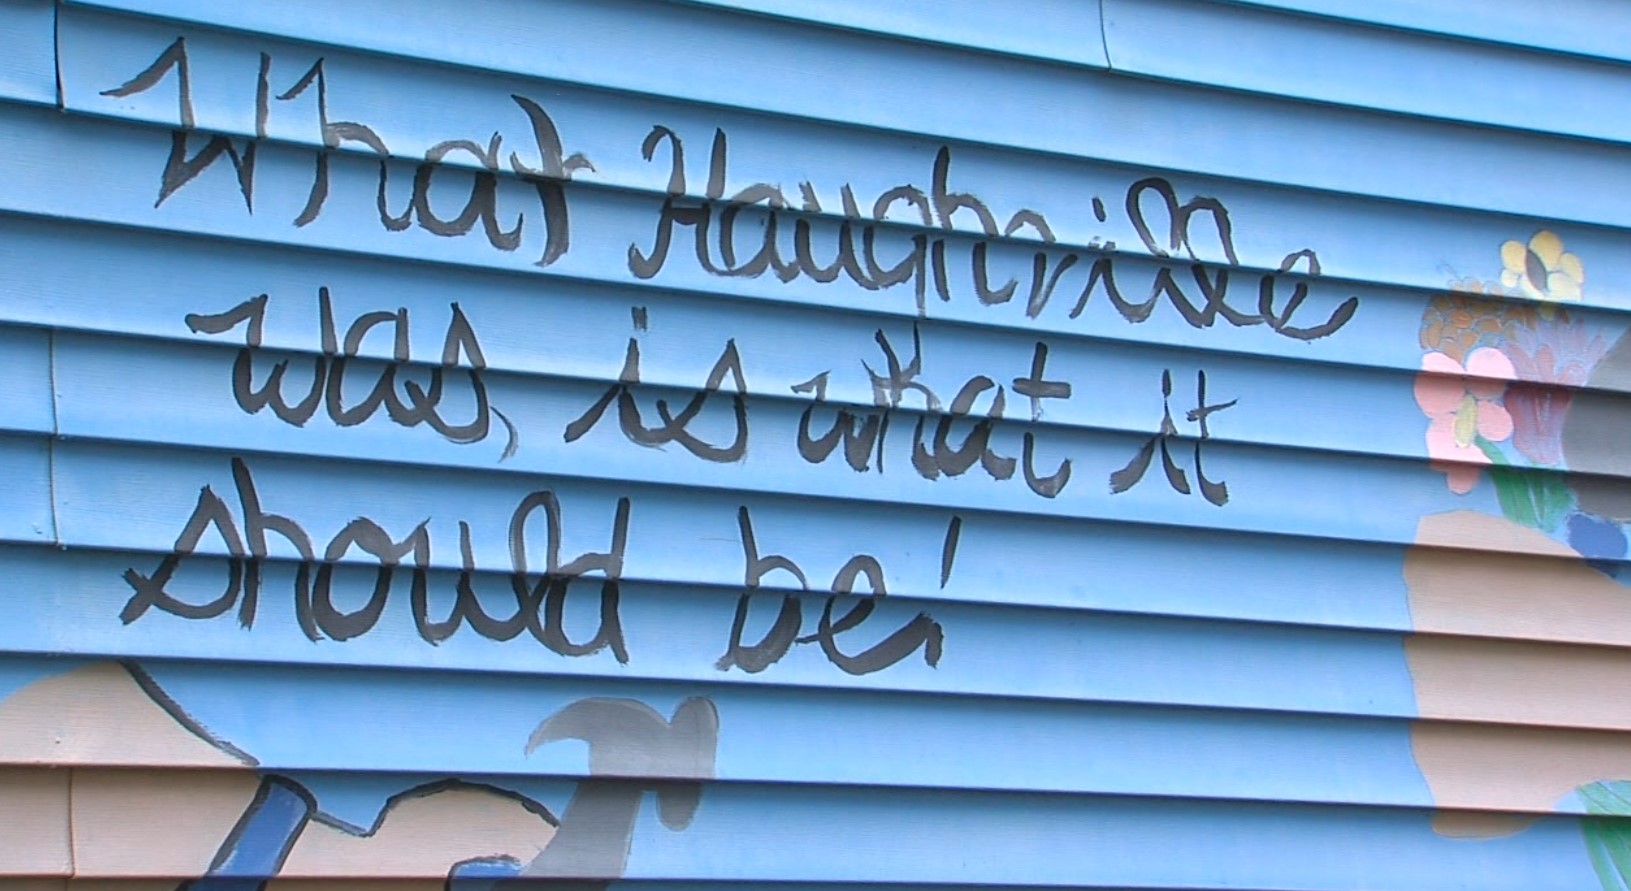 What Haughville
was, is what it
should be!